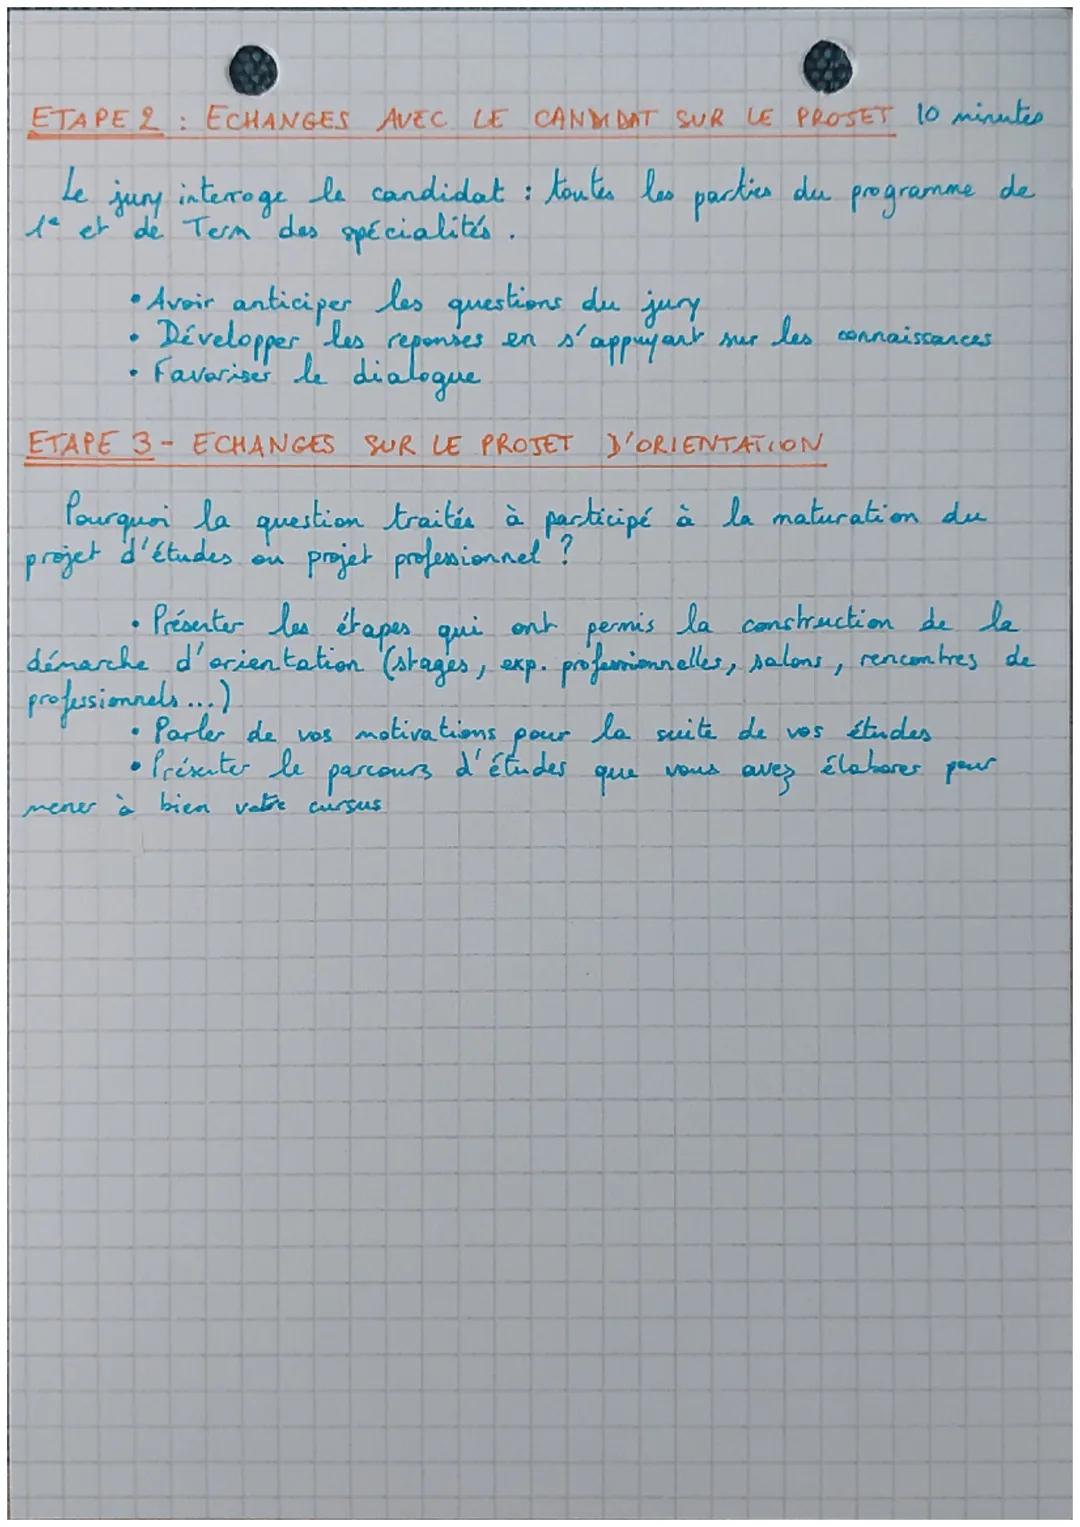 ETAPE 2 : ECHANGES AVEC LE CANDIDAT SUR LE PROJET 10 minutes
Le jury interroge le candidat : toutes les parties du programme de
1e et de Term des spécialités.
• Avoir anticiper les questions du jury
• Développer les reponses en s'appuyant sur les connaissances
• Favoriser le dialogue
ETAPE 3 - ECHANGES SUR LE PROJET D'ORIENTATION
Pourquoi la question traitée à participé à la maturation du
projet d'études ou projet professionnel ?
• Présenter les étapes qui ont permis la construction de la
démarche d'orientation (stages, exp. professionnelles, salons, rencontres de
professionnels...)
• Parler de vos motivations pour la suite de vos études
• Présenter le parcours d'études que vous avez élaborer pour
mener à bien votre cursus